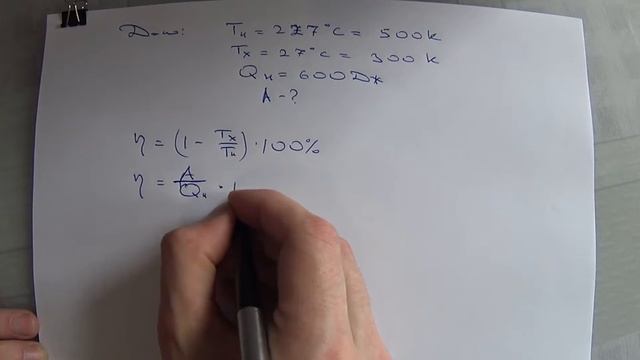 D-ш: Tн = 227°C = 500 K
Tx = 27°C = 300 K
Qн = 600 Dж
A - ?
η = (1 - Tx/Tн) · 100%
η = A/Qн · 1